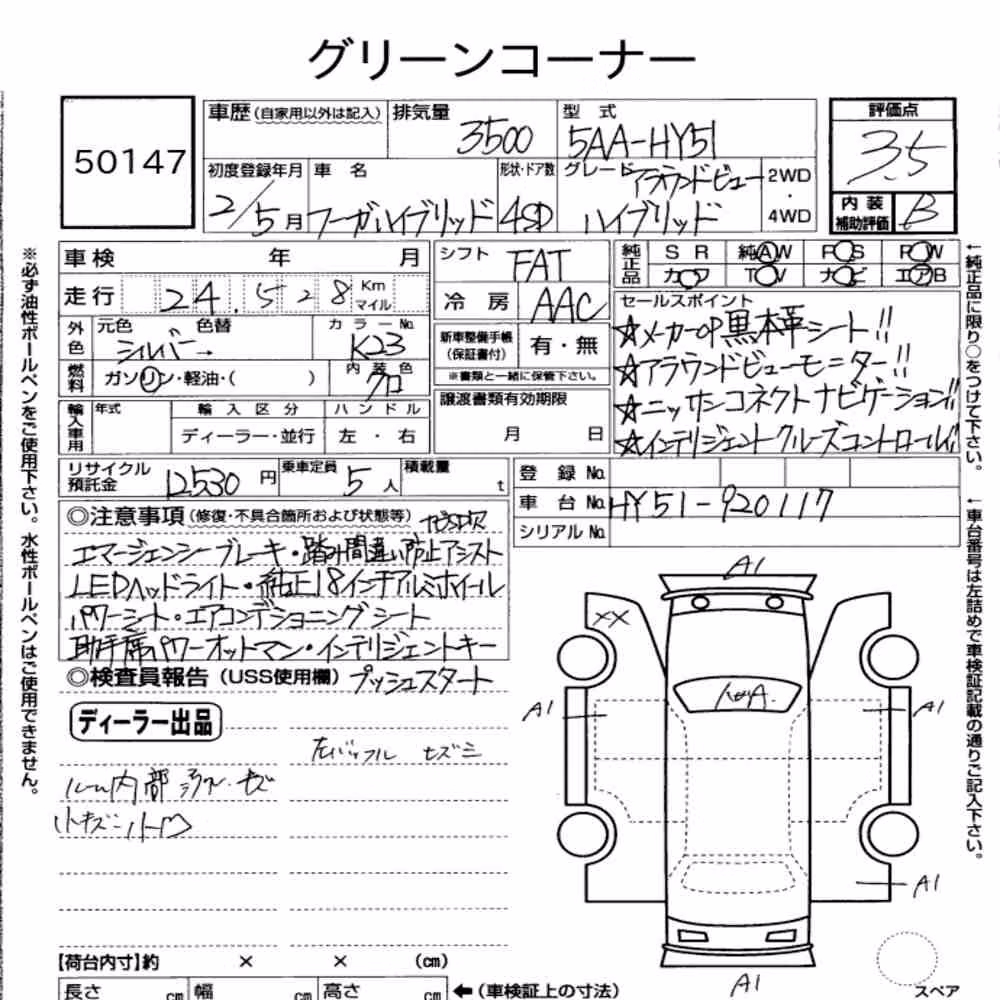 グリーンコーナー
50147
車歴(自家用以外は記入) 排気量 3500 型式 5AA-HY51
評価点 3.5
初度登録年月 2/5月 車名 フーガハイブリッド 形状・ドア数 4SD グレード アラウンドビュー ハイブリッド 2WD・4WD
内装補助評価 B
車検 年 月
走行 24,528 Km マイル
外色 元色 シルバー 色替 → カラーNo. K23
燃料 ガソリン・軽油・( ) 内装色 クロ
輸入車用 年式 輸入区分 ハンドル
ディーラー・並行 左・右
シフト FAT
冷房 AAC
新車整備手帳(保証書付) 有・無
※書類と一緒に保管下さい。
譲渡書類有効期限
月 日
純正品 SR 純AW PS PW
カワ TV ナビ エアB
セールスポイント
☆メーカーOP黒本革シート!!
☆アラウンドビューモニター!!
☆ニッサンコネクトナビゲーション!!
☆インテリジェントクルーズコントロール!!
リサイクル預託金 12530円 乗車定員 5人 積載量 t
登録No.
車台No. HY51-920117
シリアルNo.
◎注意事項(修復・不具合箇所および状態等)
エマージェンシーブレーキ・踏み間違い防止アシスト
LEDヘッドライト・純正18インチアルミホイール
パワーシート・エアコンディショニングシート
助手席パワーオットマン・インテリジェントキー
◎検査員報告(USS使用欄) プッシュスタート
ディーラー出品
キズ
【荷台内寸】約 × × (cm)
長さ cm 幅 cm 高さ cm ←(車検証上の寸法)
A1
XX
A1
A1
A1
A1
スペア
※必ず油性ボールペンをご使用下さい。水性ボールペンはご使用できません。
←純正品に限り○をつけて下さい。
←車台番号は左詰めで車検証記載の通りご記入下さい。